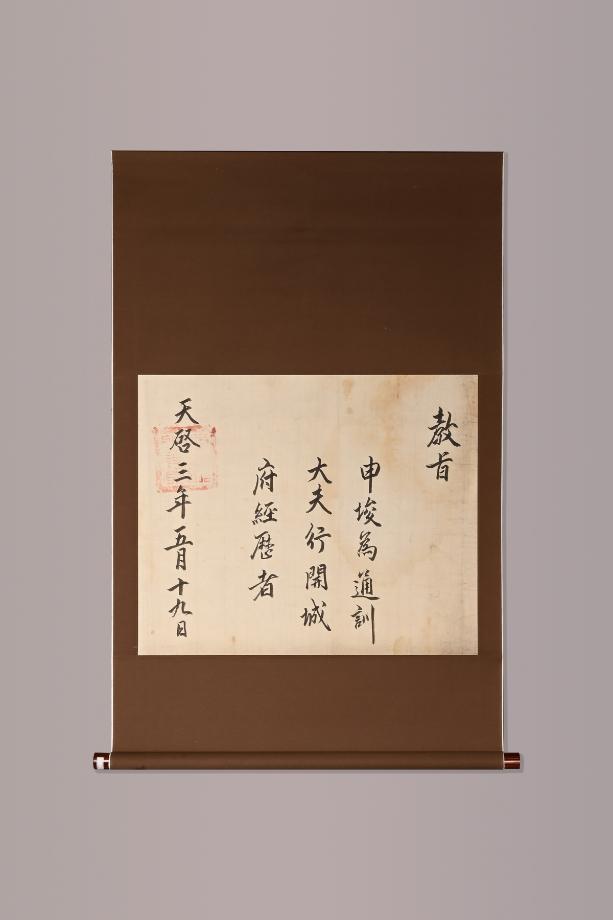 敎旨
申埈爲通訓
大夫行開城
府經歷者
天啓三年五月十九日